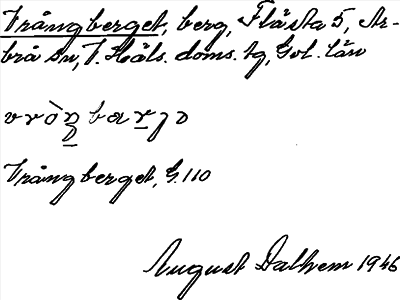 Vrångberget, berg, Flästa 5, Ar-
brå sn, V. Häls. doms. tg, Gvl. län
Vrångberget, G. 110
August Dalhem 1946